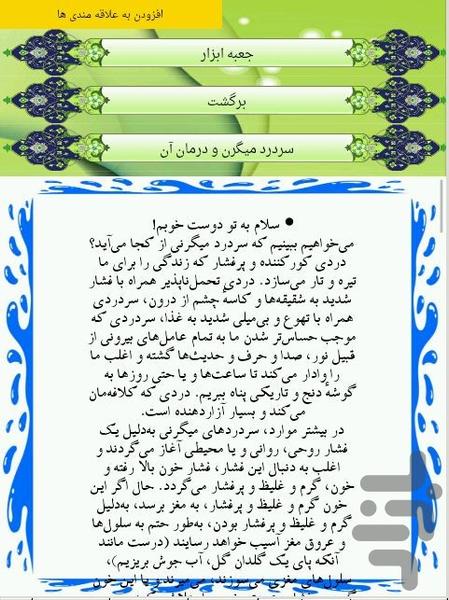 افزودن به علاقه مندی ها
جعبه ابزار
برگشت
سردرد میگرن و درمان آن
● سلام به تو دوست خوبم!
می‌خواهیم ببینیم که سردرد میگرنی از کجا می‌آید؟
دردی کورکننده و پرفشار که زندگی را برای ما
تیره و تار می‌سازد. دردی تحمل‌ناپذیر همراه با فشار
شدید به شقیقه‌ها و کاسهٔ چشم از درون، سردردی
همراه با تهوع و بی‌میلی شدید به غذا، سردردی که
موجب حساس‌تر شدن ما به تمام عامل‌های بیرونی از
قبیل نور، صدا و حرف و حدیث‌ها گشته و اغلب ما
را وادار می‌کند تا ساعت‌ها و یا حتی روزها به
گوشهٔ دنج و تاریکی پناه ببریم. دردی که کلافه‌مان
می‌کند و بسیار آزاردهنده است.
در بیشتر موارد، سردردهای میگرنی به‌دلیل یک
فشار روحی، روانی و یا محیطی آغاز می‌گردند و
اغلب به دنبال این فشار، فشار خون بالا رفته و
خون، گرم و غلیظ و پرفشار می‌گردد. حال اگر این
خون گرم و غلیظ و پرفشار، به مغز برسد، به‌دلیل
گرم و غلیظ و پرفشار بودن، به‌طور حتم به سلول‌ها
و عروق مغز آسیب خواهد رسانید (درست مانند
آنکه پای یک گلدان گل، آب جوش بریزیم)،
سلول‌های مغزی می‌سوزند، می‌میرند و یا این خون